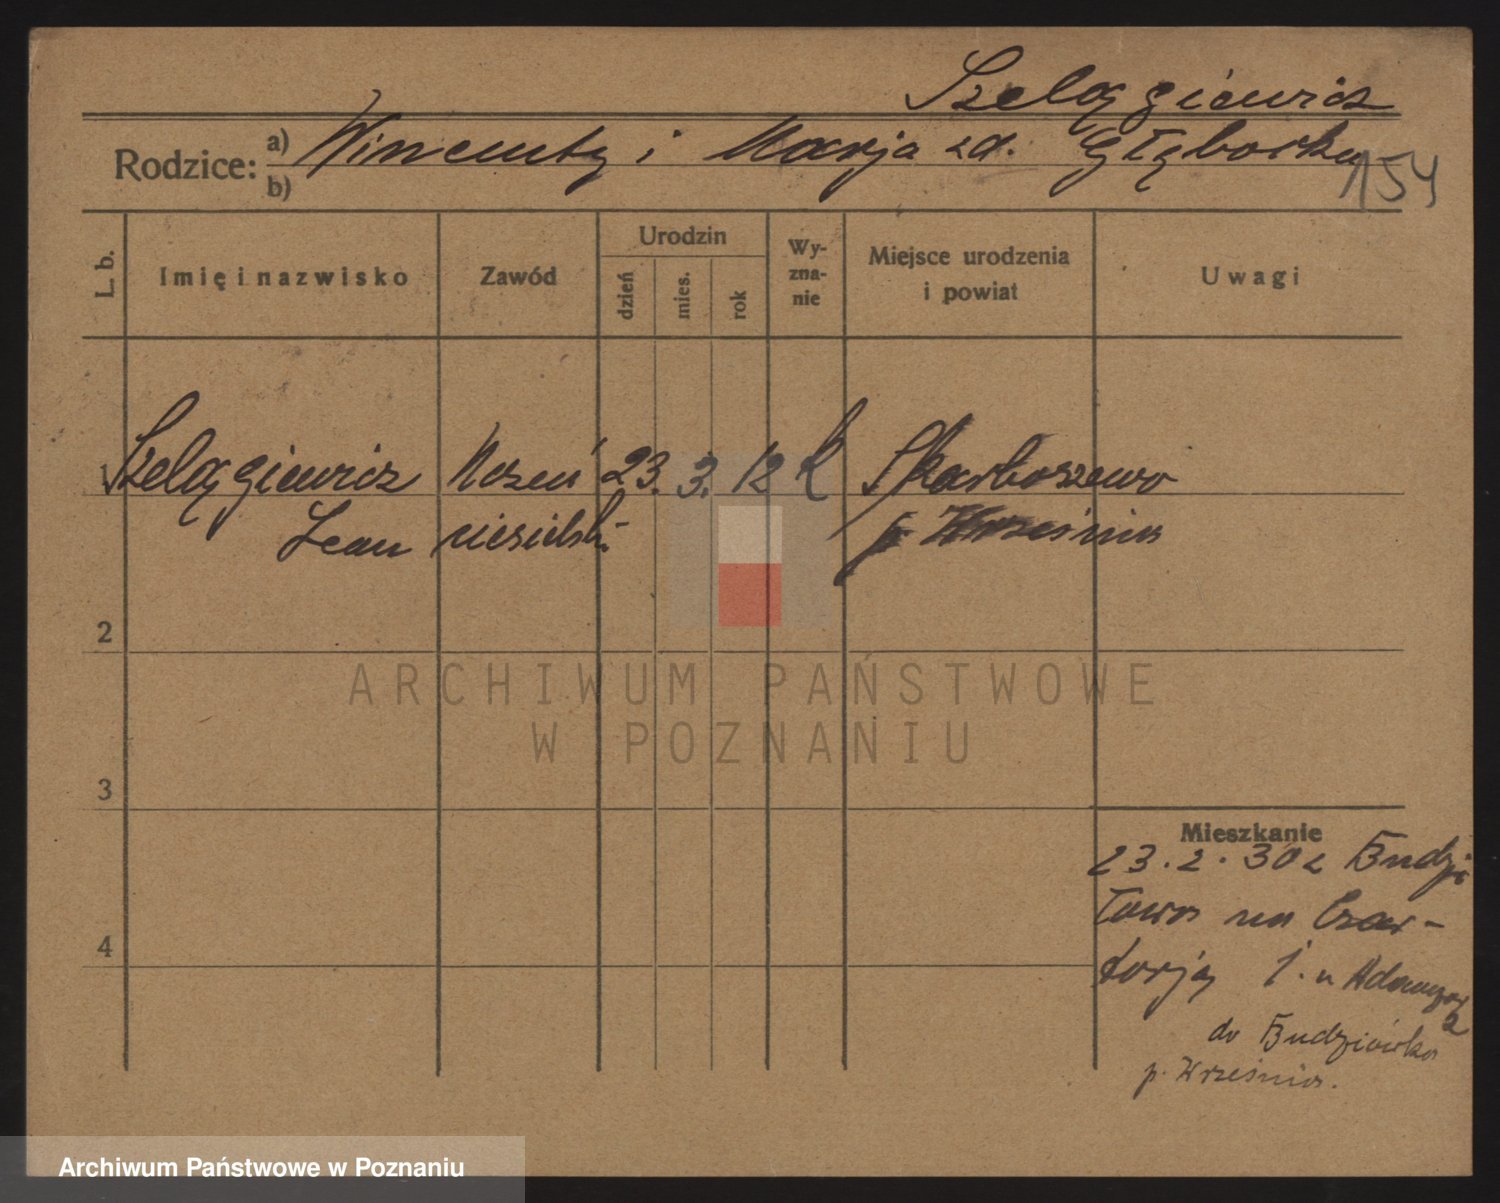 Szelągiewicz
Rodzice: a) Wincenty i Marja zd. Głębocka
b)
154
L. b.
Imię i nazwisko
Zawód
Urodzin
dzień
mies.
rok
Wy-
zna-
nie
Miejsce urodzenia
i powiat
Uwagi
1 Szelągiewicz
Leon
uczeń
ciesielski
23. 3. 12
k
Skarboszewo
p. Września
2
3
4
Mieszkanie
23.2.30 z Budzi
łowa na Czar-
torja 1.
do Budziłówka
p. Września.
ARCHIWUM PAŃSTWOWE
W POZNANIU
Archiwum Państwowe w Poznaniu